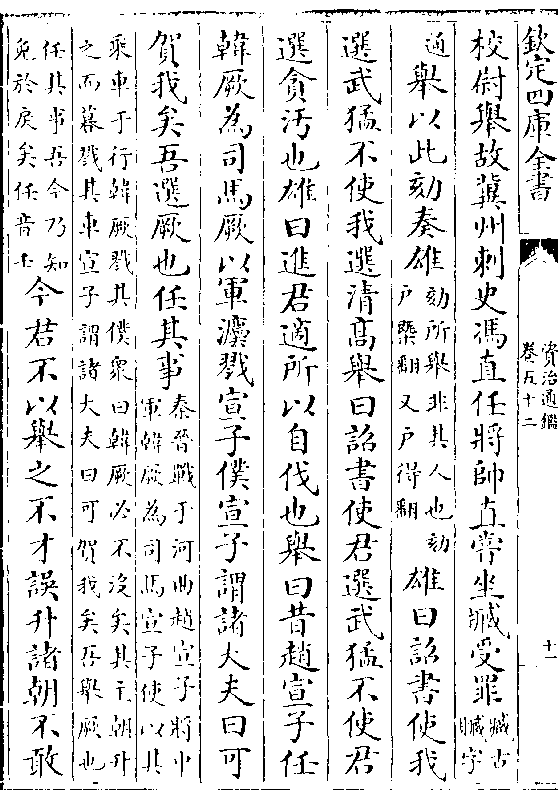 欽定四庫全書
資治通鑑
卷五十二
十一
校尉舉故冀州刺史馮直任將帥直嘗坐臧受罪
臧古
字
通
舉以此劾奏雄
劾所舉非其人也劾
戶槩翻又戶得翻
雄曰詔書使我
選武猛不使我選清髙舉曰詔書使君選武猛不使君
選貪汚也雄曰進君適所以自伐也舉曰昔趙宣子任
韓厥為司馬厥以軍灋戮宣子僕宣子謂諸大夫曰可
賀我矣吾選厥也任其事
秦晉戰于河曲趙宣子將中
軍韓厥為司馬宣子使以其
乘車干行韓厥戮其僕衆曰韓厥必不沒矣其主朝升
之而暮戮其車宣子謂諸大夫曰可賀我矣吾舉厥也
任其事吾今乃知
免於戾矣任音壬
今君不以舉之不才誤升諸朝不敢